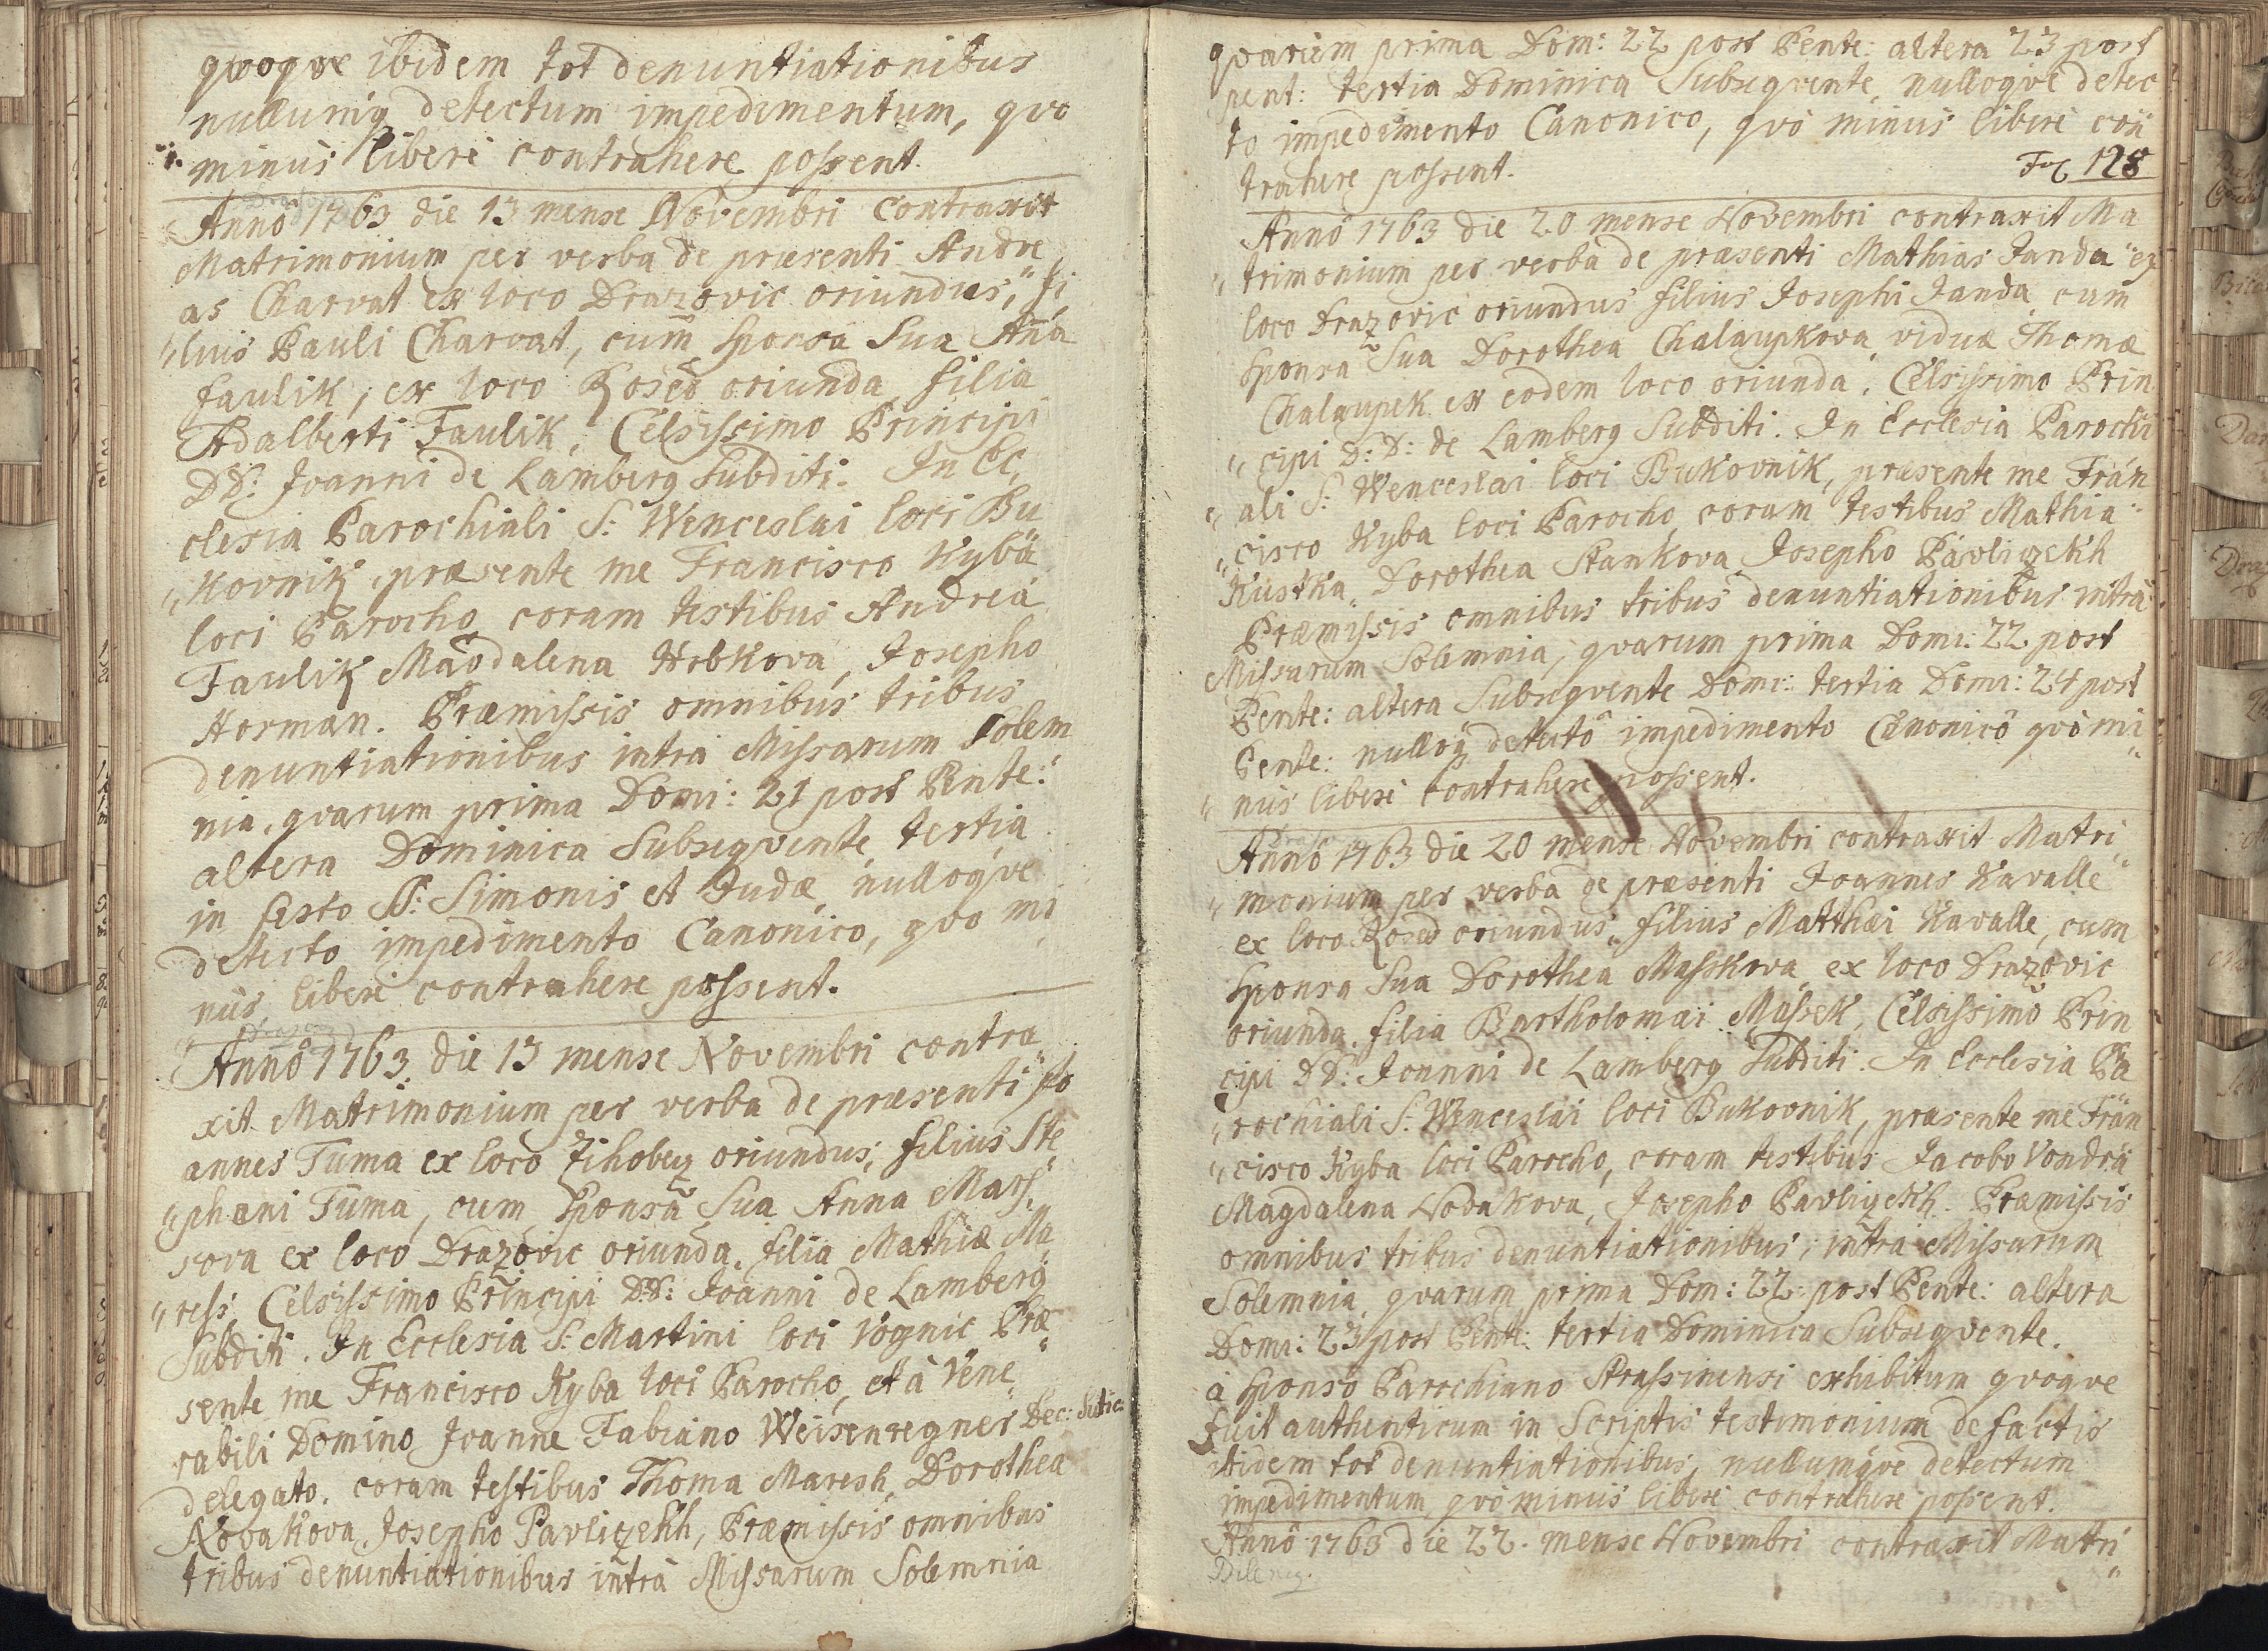 qvoqve ibidem tot denuntiationibus
nullumq detectum impedimentum, qvo
minus liberè contrahere possent.
Annô 1763 die 13 mense Novembri Contraxit
Matrimonium per verba de præsenti Andre
as Charvat ex loco Drazovic oriundus, fi
"lius Pauli Charvat, cum sponsa Sua Aña
Faulik, ex loco Rosed oriunda filia
Adalberti Faulik, Celsissimo Principi
DD: Joanni de Lamberg Subditi. In Ec,
clesia Parochiali S: Wenceslai loci Bu
"kovnik, præsente me Francisco Kyba
loci Parocho, coram testibus Andreá
Faulik Magdalena Hrbkova, Josepho
Horman. Præmissis omnibus tribus
denuntiationibus intrà Missarum Solem
nia, qvarum prima Domi: 21 post Pente:
altera Dominica Subseqvente, tertia
in festo SS: Simonis et Judæ, nulloqve
detecto impedimento Canonico, qvo mi
nus liberè contrahere possent.
Annô 1763 die 13 mense Novembri contra
xit Matrimonium per verba de præsenti Jo
annes Tuma ex loco Zihobcz oriundus, filius Ste
"phani Tuma, cum Sponsa Sua Anna Mars,
sova ex loco Drazovic oriunda, filia Mathiæ Ma
"ress, Celsissimo Principi DD: Joanni de Lamberg
Subditi. In Ecclesia S: Martini loci Vognic Præ
sente me Francisco Kyba loci Parocho, et à Vene
rabili Domino Joanne Fabiano Weisenregner Dec: Sutic:
delegato, coram testibus Thoma Maresh, Dorothea
Novakova, Josepho Pavliczekh, Præmissis omnibus
tribus denuntiationibus intrà Missarum Solemnia
qvarum prima Dom: 22 post Pente: altera 23 post
pent: tertia Dominica Subseqvente, nulloqve detec
to impedimento Canonico, qvò minus liberè con
trahere possent.
Fol 128
Annô 1763 die 20 mense Novembri contraxit Ma
"trimonium per verba de præsenti Mathias Janda ex
loco Drazovic oriundus filius Josephi Janda, cum
Sponsa Sua Dorothea Chalaupkova viduæ Thomæ
Chalaupek ex eodem loco oriunda, Celsissimo Prin
"cipi D: D: de Lamberg Subditi. In Ecclesia Parochi
"ali S: Wenceslai loci Bukovnik, præsente me Fran
"cisco Kyba loci Parocho, coram testibus Mathia
Kustka, Dorothea Stankova, Josepho Pavliczekh
Præmissis omnibus tribus denuntiationibus intrà
Missarum Solemnia, qvarum prima Domi: 22 post
Pente: altera Subseqvente Domi: tertia Domi: 24 post
Pente: nulloq detectô impedimento Canonicô qvò mi
"nus liberè contrahere possent.
Annô 1763 die 20 mense Novembri contraxit Matri,
"monium per verba de præsenti Joannes Kavalle
ex loco Rosed oriundus, filius Matthæi Kavalle, cum
sponsa Sua Dorothea Masskova ex loco Drazovic
oriunda, filia Bartholomæi Massek, Celsissimo Prin
cipi DD: Joannni de Lamberg Subditi. In Ecclesia Pa
"rochiali S: Wenceslai loci Bukovnik, præsente me Fran
"cisco Kyba loci Parocho, coram testibus Jacobo Vondra
Magdalena Novakova, Josepho Pavliczekh. Præmissis
omnibus tribus denuntiationibus, intrà Missarum
Solemnia, qvarum prima Dom: 22 post Pente: altera
Domi: 23 post Pente: tertia Dominica Subseqvente.
à Sponsô Parochiano Strassinensi exhibitum qvoqve
fuit authenticum in Scriptis testimonium de factis
itidem tot denuntiationibus, nullumqve detectum
impedimentum qvò minus liberè contrahere possent.
Annô 1763 die 22. mense Novembri contraxit Matri